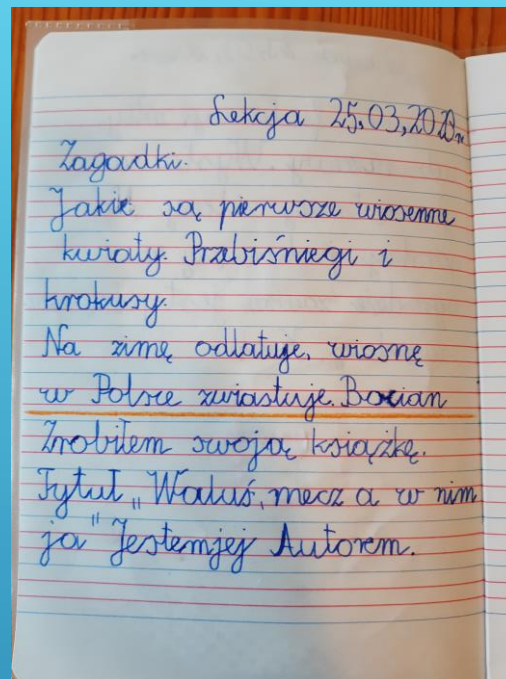 Lekcja 25.03.2023r.
Zagadki.
Jakie są pierwsze wiosenne
kwiaty. Przebiśniegi i
krokusy.
Na zimę odlatuje, wiosnę
w Polsce zwiastuje. Bocian
Zrobiłem swoją książkę.
Tytuł „Waluś, mecz a w nim
ja" Jestemjej Autorem.